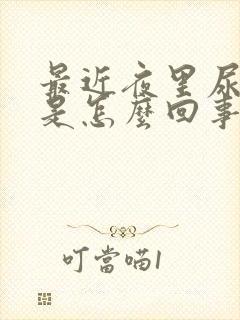 最近夜里尿
是怎麼回事
叮當喵1